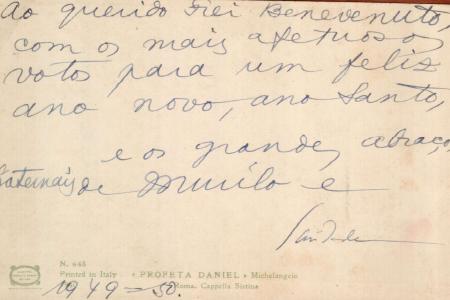 Ao querido Frei Benevenuto,
com os mais afetuosos
votos para um feliz
ano novo, ano Santo,
e os grandes abraços
fraternais de Murilo e
N. 648
Printed in Italy « PROFETA DANIEL » Michelangelo
Roma. Cappella Sistina
1949-50.